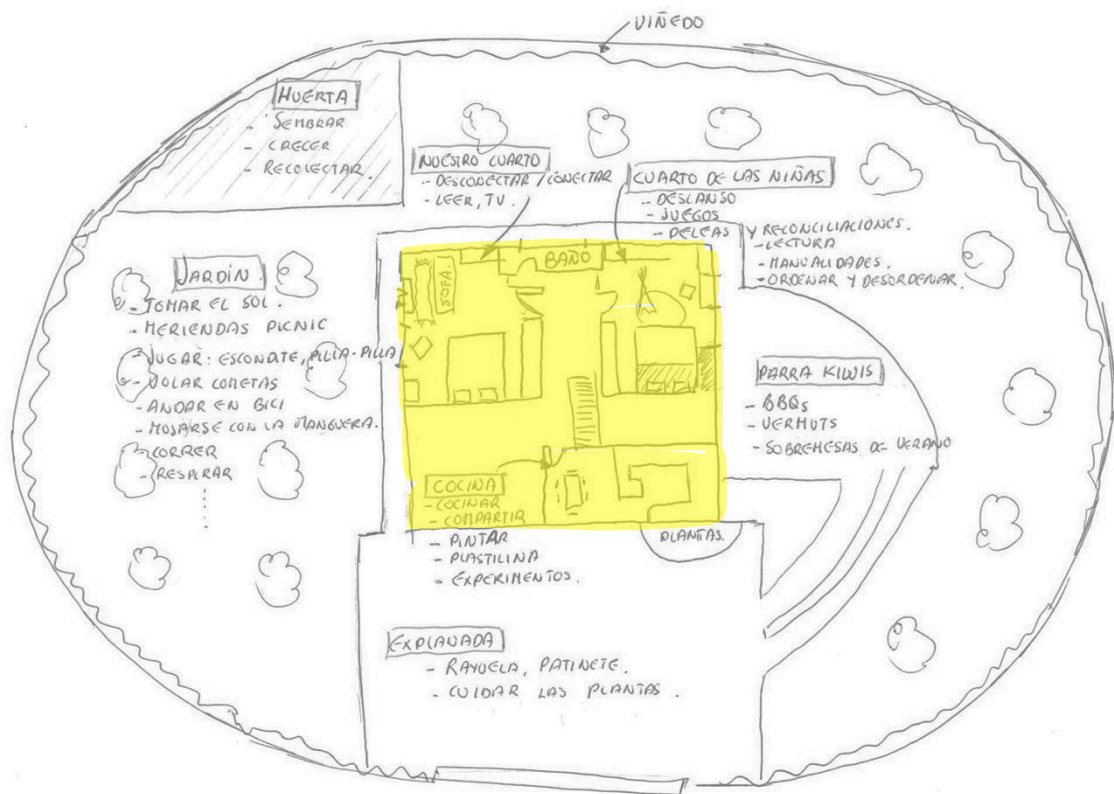 VIÑEDO
HUERTA
- SEMBRAR
- CRECER
- RECOLECTAR.
NUESTRO CUARTO
- DESCONECTAR / CONECTAR
- LEER, TV.
CUARTO DE LAS NIÑAS
- DESCANSO
- JUEGOS
- PELEAS Y RECONCILIACIONES.
- LECTURA
- MANUALIDADES.
- ORDENAR Y DESORDENAR.
BAÑO
SOFÁ
TV
JARDÍN
- TOMAR EL SOL.
- MERIENDAS PICNIC
- JUGAR: ESCONDITE, PILLA-PILLA
- VOLAR COMETAS
- ANDAR EN BICI
- MOJARSE CON LA MANGUERA.
- CORRER
- RESPIRAR
PARRA KIWIS
- BBQs
- VERMUTS
- SOBREMESAS DE VERANO
COCINA
- COCINAR
- COMPARTIR
- PINTAR
- PLASTILINA
- EXPERIMENTOS.
PLANTAS.
EXPLANADA
- RAYUELA, PATINETE.
- CUIDAR LAS PLANTAS.